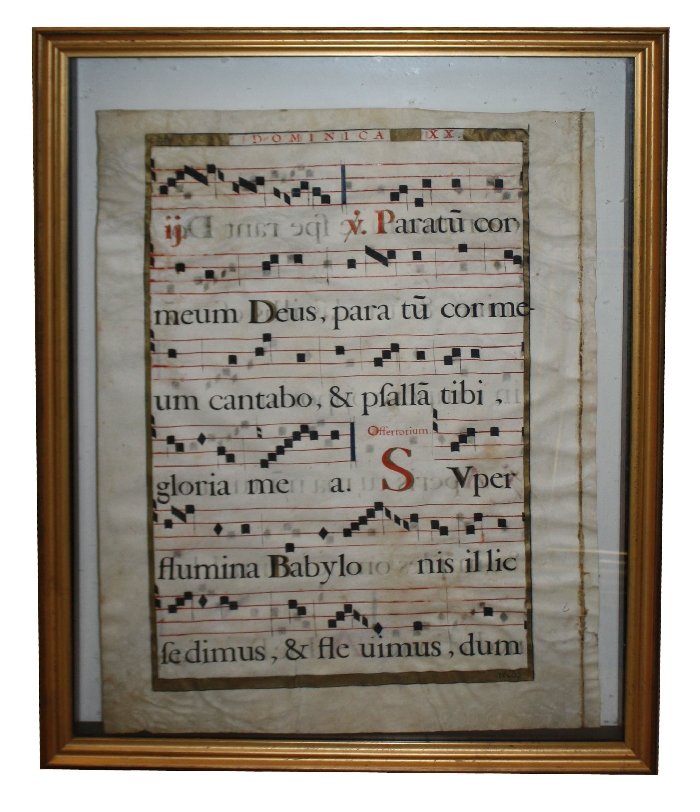 DOMINICA XX.
ij ℣. Paratū cor
meum Deus, para tū cor me-
um cantabo, & pſallā tibi,
gloria me a. Offertorium. SVper
flumina Babylo nis illic
ſedimus, & fle uimus, dum